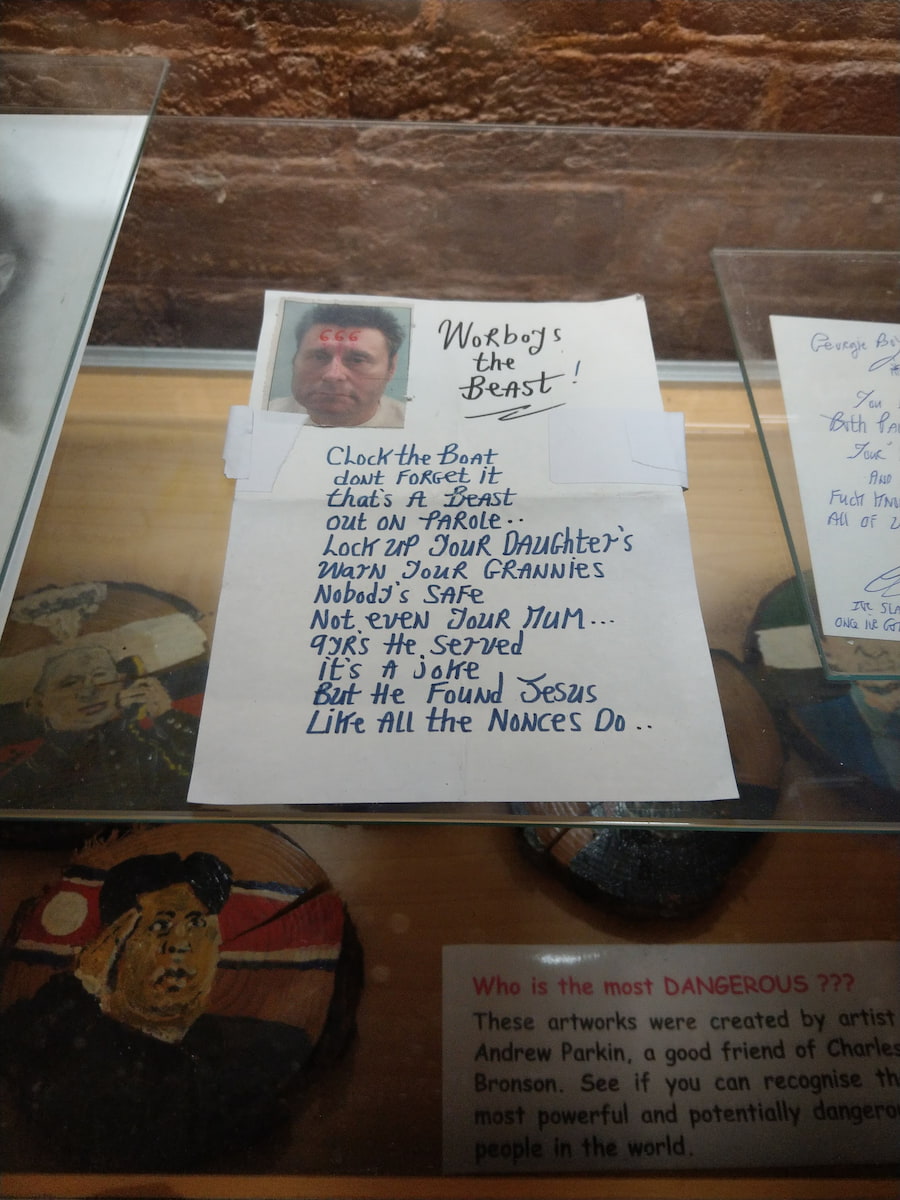 666
Worboys
the
Beast!
Clock the Boat
dont Forget it
that's A Beast
out on Parole..
Lock up your Daughter's
Warn your Grannies
Nobody's Safe
Not even your Mum...
9yr's He served
it's A joke
But He Found Jesus
Like All the Nonces Do..
Georgie
You
Both
Your
And
Fuck
All of
I've
One I've
Who is the most DANGEROUS ???
These artworks were created by artist
Andrew Parkin, a good friend of Charles
Bronson. See if you can recognise th
most powerful and potentially dangero
people in the world.